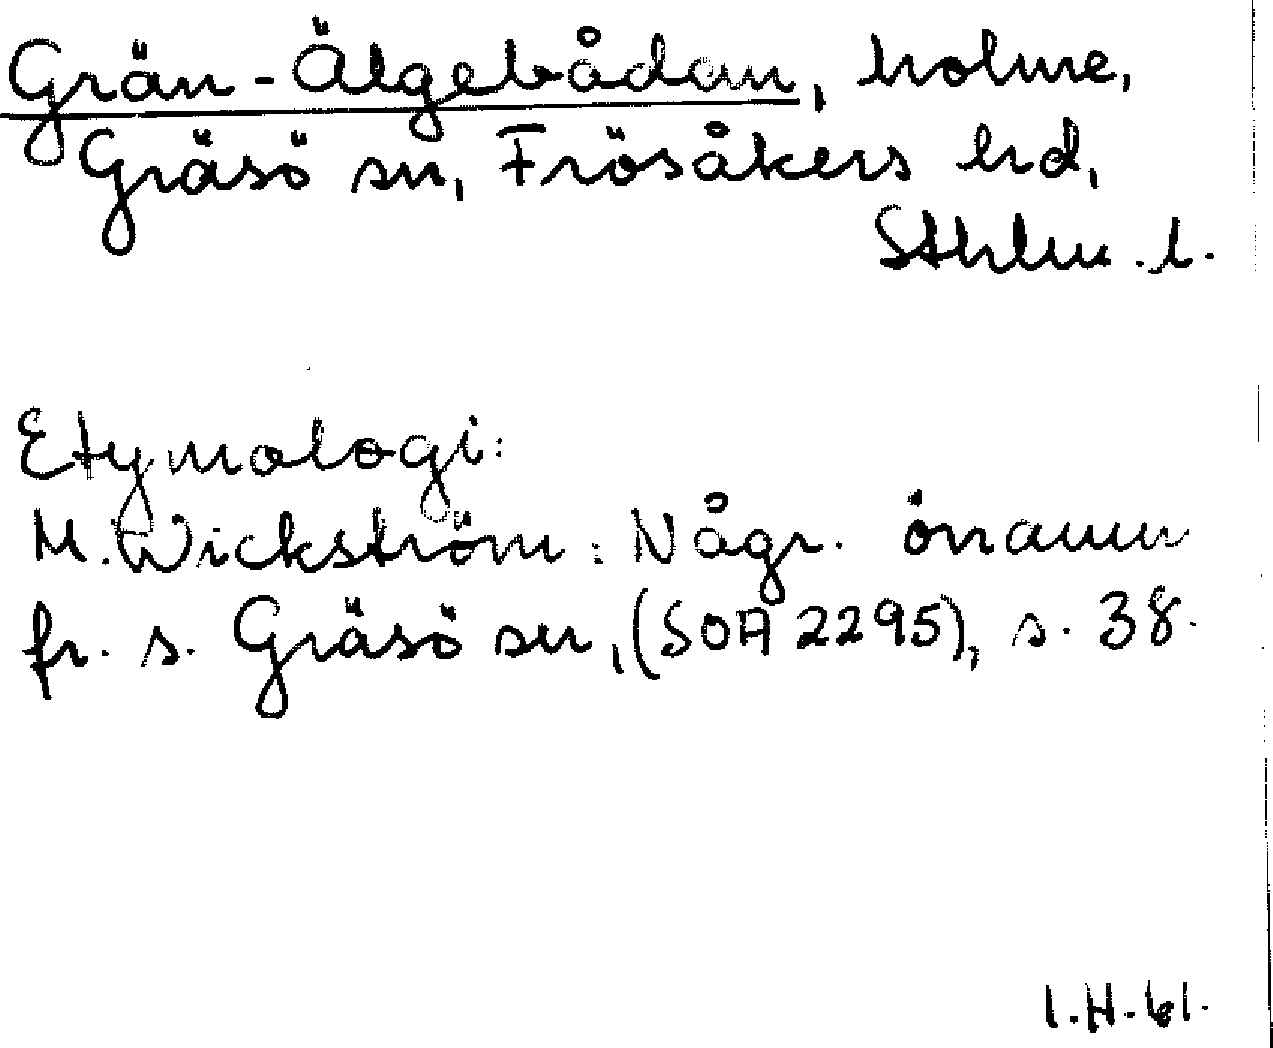 Grän-Älgebådan, holme,
Gräsö sn, Frösåkers hd,
Sthlm.l.
Etymologi:
M.Wickström: Någr. önamn
fr. s. Gräsö sn, (SOA 2295), s. 38.
I.H.61.